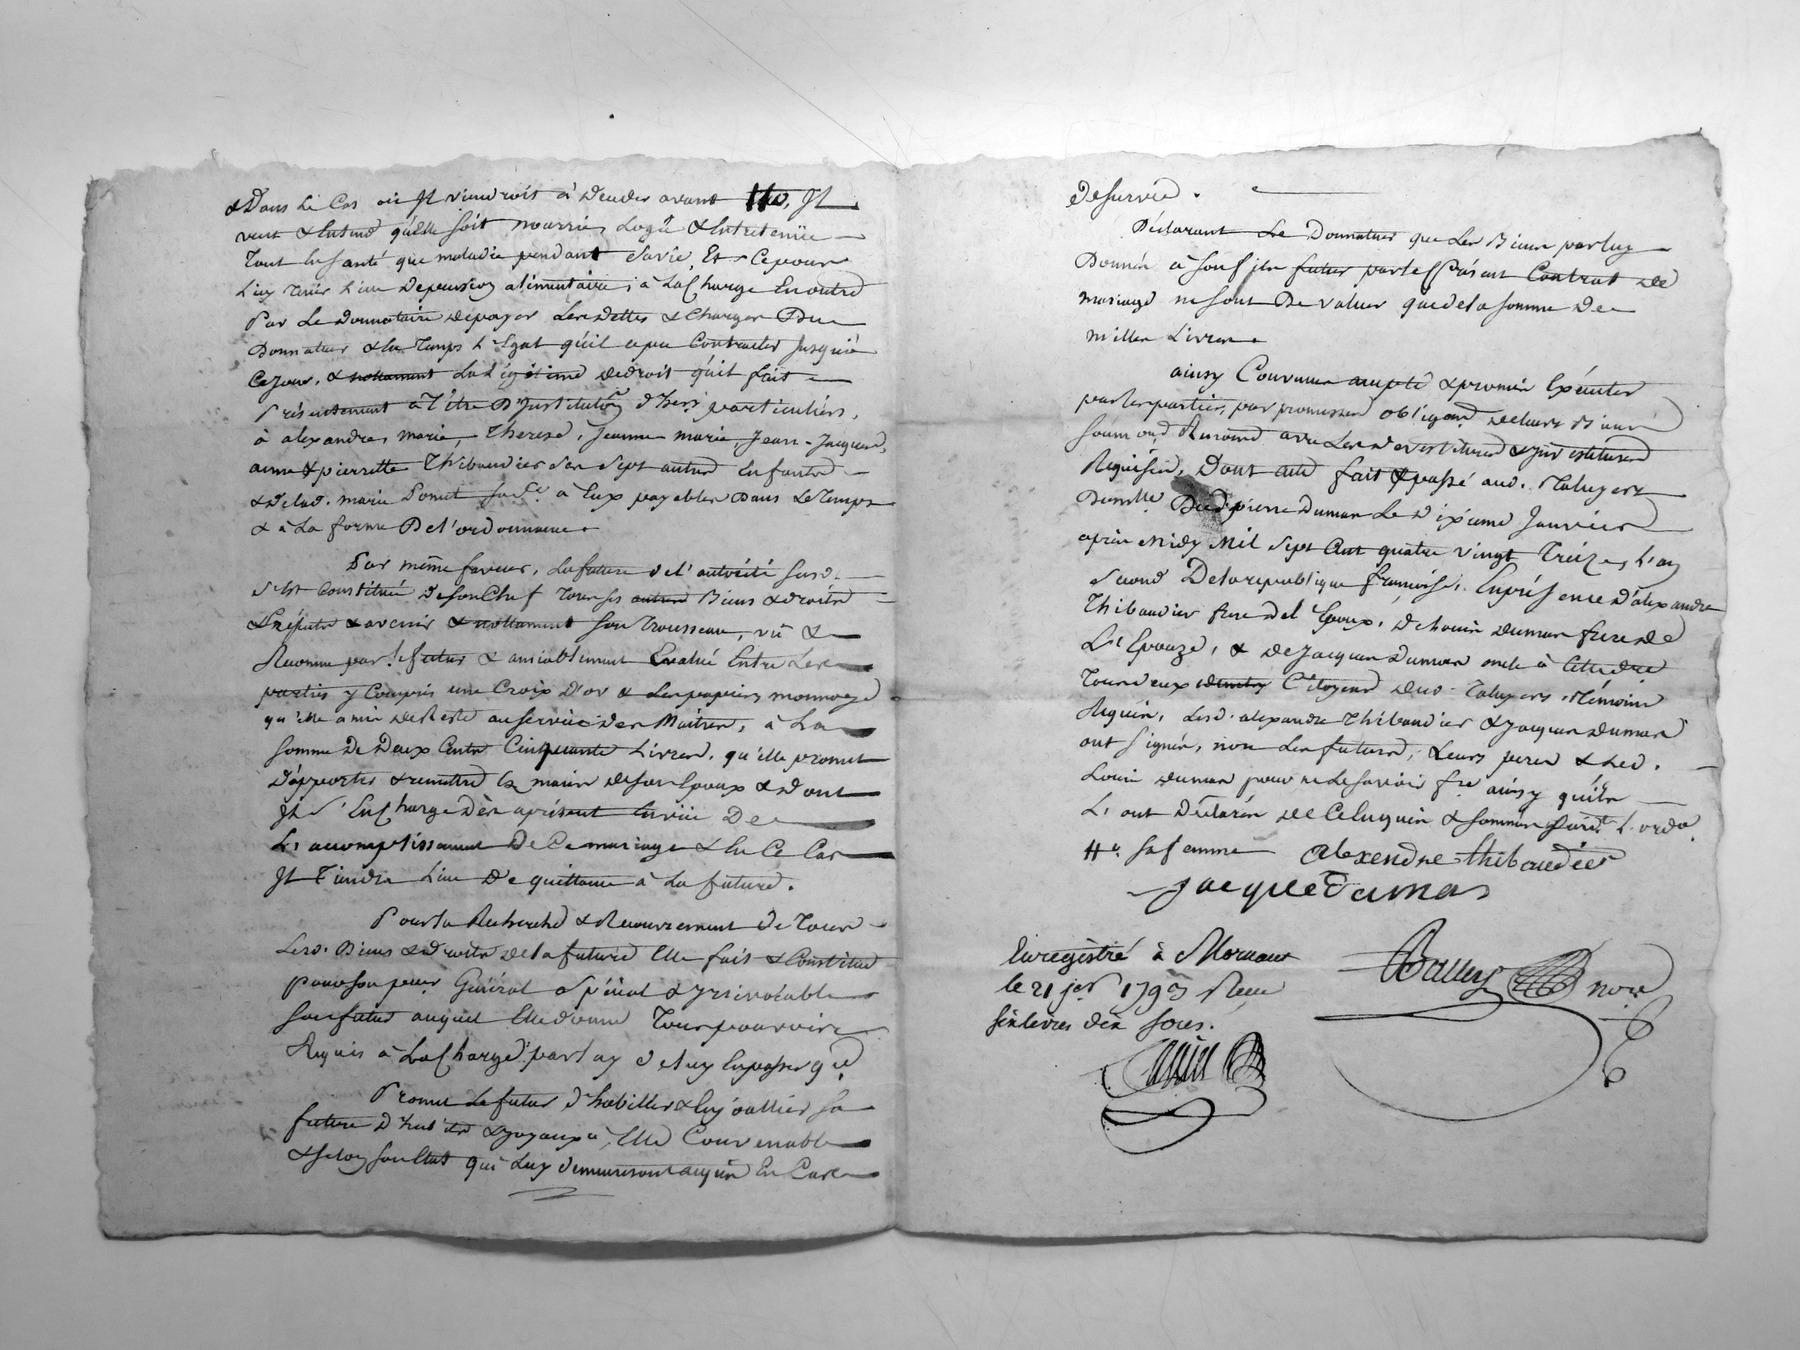 & Dans le Cas où Il viendroit à Deceder avant Il
veut & Entend quelle soit nourrie, Logée & Entretenüe
Tant en santé que maladie pendant sa vie, Et Ce pour
Luy Tenir Lieu De pension alimentaire, à La Charge En outre
Par Le Donnataire De payer Les Dettes & Charges Du
Donnateur & en Temps & Egat qu'il a pu Contracter Jusqu'à
Ce Jour, & nottament La Légitime de droit qu'il fait
Présentement à Titre D'Institution d'hers particuliers,
à alexandre, marie, Therese, Jeanne marie, Jean-Jacques,
anne & pierrette Thibaudier ses sept autres Enfants
& De lad. marie Ponut sa fe. à Eux payables Dans Le Temps
& à La forme De l'ordonnance.
Par même faveur, La future de l'autorité susd.
s'Est Constituée De son Chef Tous ses autres Biens & droits
& avenir & nottament son Trousseau, vû &
Reconnu par le futur & amiablement Evalué Entre Les
parties y Compris une Croix D'or & Les papiers monnoye
qu'elle a mis De Reste au service des Maitres, à La
somme De Deux Cents Cinquante Livres, qu'elle promet
D'apporter & remettre Es mains De son Epoux & dont
Il s'En Charge Dès aprésent En vüe De
L'accomplissement De Ce mariage & En Ce Cas
Il Tiendra Lieu De quittance à La future.
Pour la Recherche & Recouvrement De Tous
Lesd. Biens & droits De la future Elle fait & Constitue
pour son procr. Général Spécial & Irrévocable
son futur auquel Elle donne Tous pouvoirs
Requis à La Charge par luy
Promet Le futur d'habiller & Enjoallier sa
future D'habits & Joyaux à Elle Convenable
& selon son Etat qui Luy demeureront acquis En Cas
De survie.
Déclarant Le Donnateur que Les Biens par luy
Donnés à son fils futur par le présent Contrat De
mariage ne sont De valeur que de la somme De
milles Livres.
ainsy Convenu accepté & promis Exécuter
par les parties, par promesses obligaons De leurs Biens
soumons Renons avec Les devestitures & Investitures
Requises, Dont acte fait & passé aud. Taluyers
Domlle. Dud. pierre Dumas Le Dixieme Janvier
après Midy Mil Sept Cent quatre vingt Treize, L'an
second De la republique française, En présence D'alexandre
Thibaudier frere de l'Epoux, De Louis Dumas frere De
L'Epouze, & De Jacques Dumas oncle à Cette dre
Tous deux Citoyens dud. Taluyers, Témoins
Requis, Lesd. alexandre Thibaudier & Jacques Dumas
ont signés, non Les futurs, Leurs peres & led.
Louis Dumas pour ne Le savoir fre. ainsy qu'ils
L'ont Déclarés De Ce Enquis & sommés suivt. L'ordo.
sa femme alexendre thibaudier
Jacque Dumas
Enregistré à Mornant
le 21 jer. 1793 Reçu
six livres dix sous.
nore